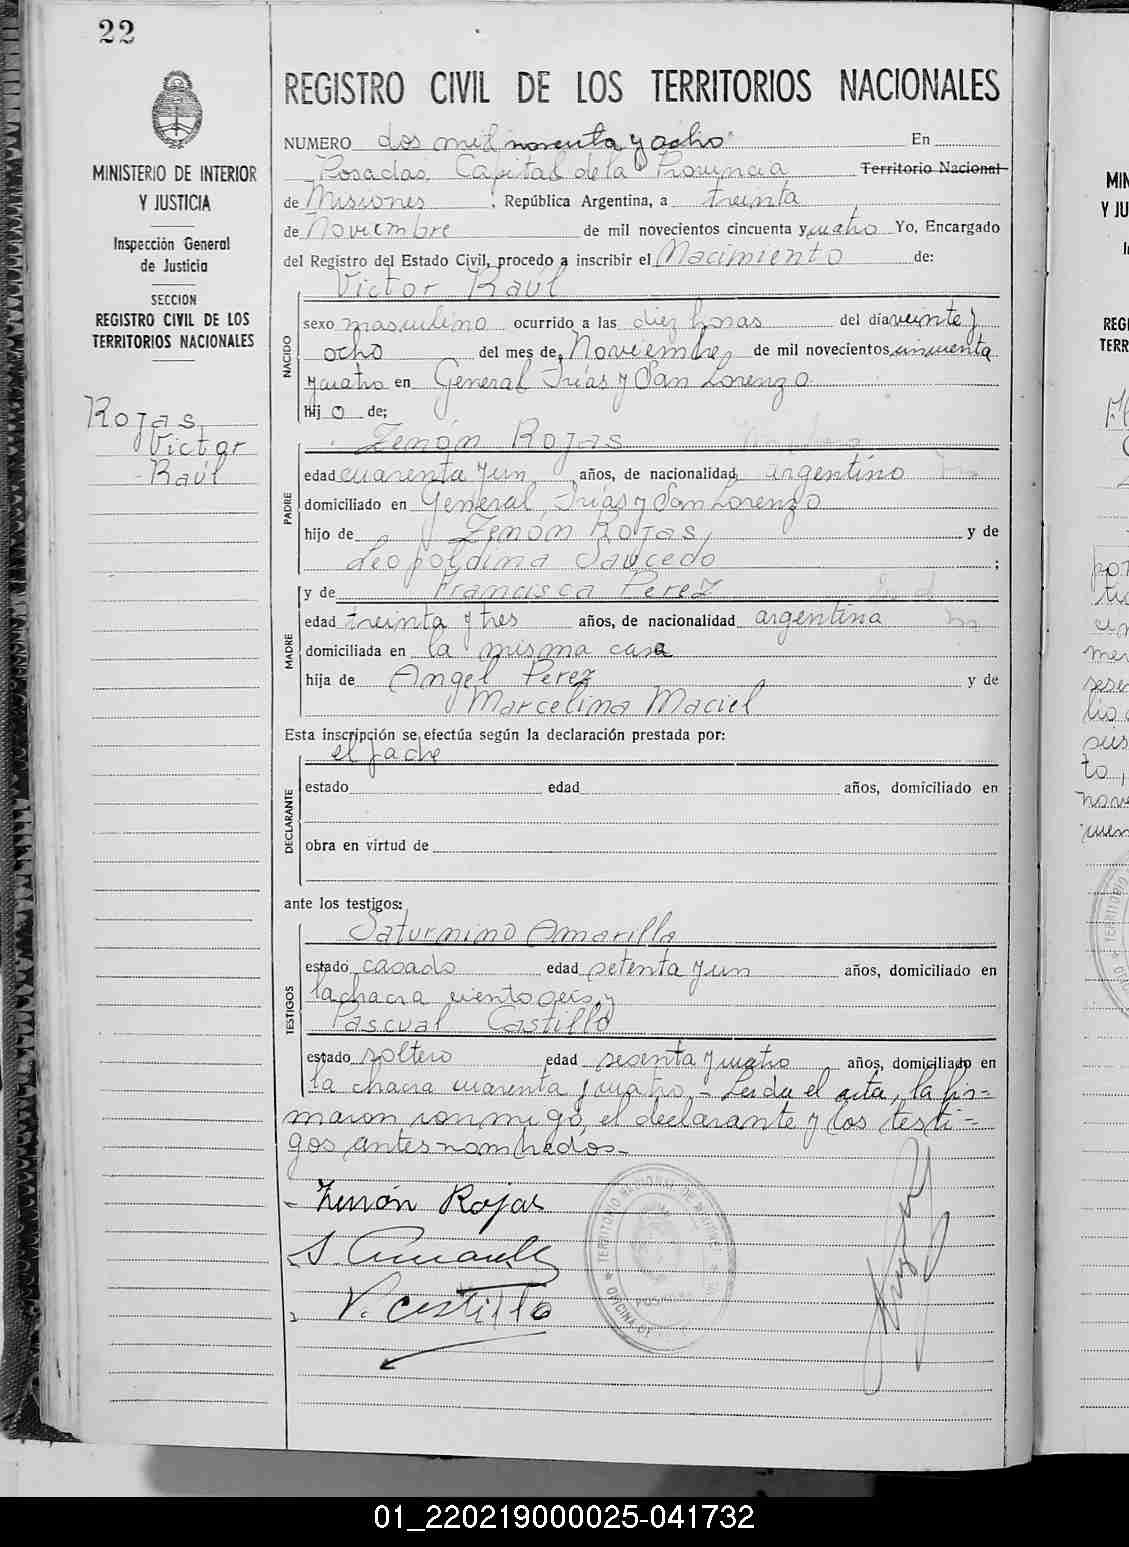 22
MINISTERIO DE INTERIOR
Y JUSTICIA
Inspección General
de Justicia
SECCION
REGISTRO CIVIL DE LOS
TERRITORIOS NACIONALES
Rojas
Victor
Raúl
REGISTRO CIVIL DE LOS TERRITORIOS NACIONALES
NUMERO dos mil noventa y ocho En
Posadas Capital de la Provincia Territorio Nacional
de Misiones, República Argentina, a treinta
de Noviembre de mil novecientos cincuenta y cuatro Yo, Encargado
del Registro del Estado Civil, procedo a inscribir el Nacimiento de:
NACIDO
Victor Raúl
sexo masculino ocurrido a las diez horas del día veinte y
ocho del mes de Noviembre de mil novecientos cincuenta
y cuatro en General Frías y San Lorenzo
hij o de;
PADRE
Zenón Rojas
edad cuarenta y un años, de nacionalidad argentino
domiciliado en General Frías y San Lorenzo
hijo de Zenón Rojas y de
Leopoldina Saucedo;
MADRE
y de Francisca Perez
edad treinta y tres años, de nacionalidad argentina
domiciliada en la misma casa
hija de Angel Perez y de
Marcelina Maciel
Esta inscripción se efectúa según la declaración prestada por:
DECLARANTE
el padre
estado edad años, domiciliado en
obra en virtud de
ante los testigos:
TESTIGOS
Saturnino Amarilla
estado casado edad setenta y un años, domiciliado en
la chacra ciento seis y
Pascual Castillo
estado soltero edad sesenta y cuatro años, domiciliado en
la chacra cuarenta y cuatro.- Leída el acta, la fir=
maron conmigo, el declarante y los testi=
gos antes nombrados.-
Zenón Rojas
S. Amarilla
P. Castillo
TERRITORIO NACIONAL DE MISIONES
POSADAS
OFICINA
01_220219000025-041732